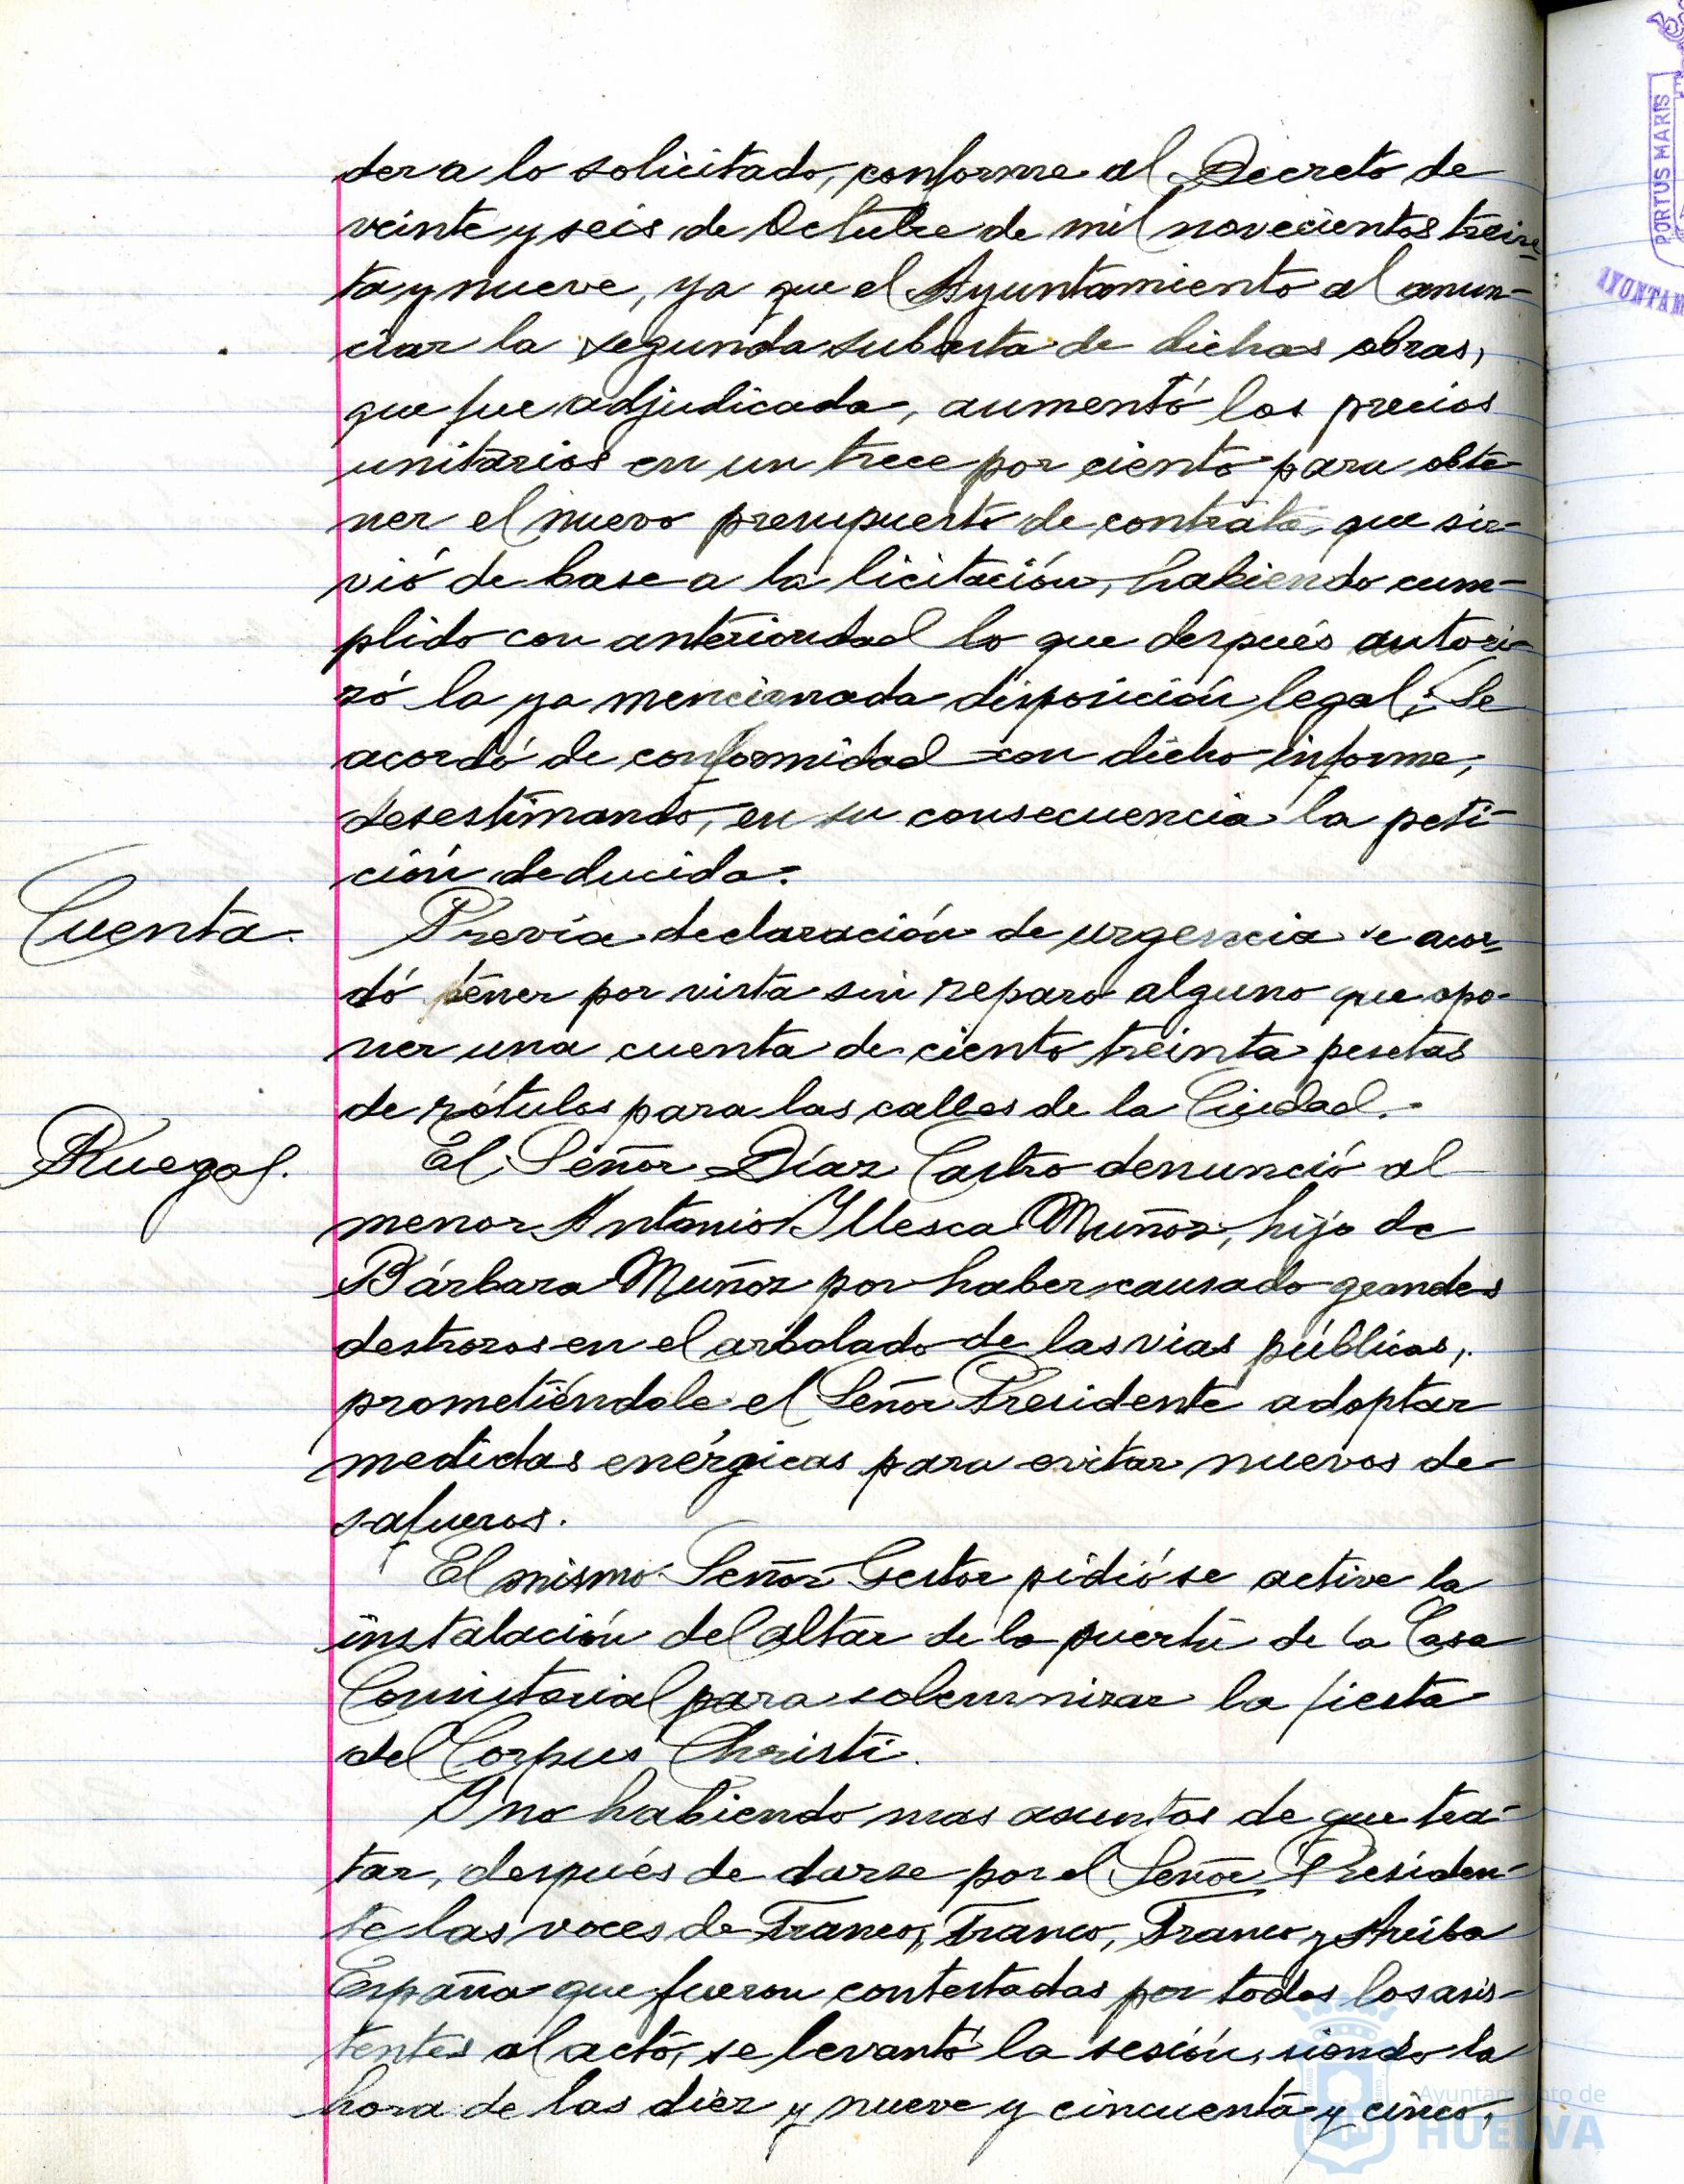 der a lo solicitado, conforme al Decreto de
veinte y seis de Octubre de mil novecientos trein-
ta y nueve, ya que el Ayuntamiento al anun-
ciar la segunda subasta de dichas obras,
que fue adjudicada, aumentó los precios
unitarios en un trece por ciento para obte-
ner el nuevo presupuesto de contrata que sir-
vió de base a la licitación, habiendo cum-
plido con anterioridad lo que después autori-
zó la ya mencionada disposición legal; Se
acordó de conformidad con dicho informe,
desestimando, en su consecuencia la peti-
ción deducida.
Cuenta.
Previa declaración de urgencia se acor-
dó tener por vista sin reparo alguno que opo-
ner una cuenta de ciento treinta pesetas
de rótulos para las calles de la Ciudad.-
Ruegos.
El Señor Díaz Castro denunció al
menor Antonio Yllesca Muñoz, hijo de
Bárbara Muñoz por haber causado grandes
destrozos en el arbolado de las vias públicas,
prometiéndole el Señor Presidente adoptar
medidas enérgicas para evitar nuevos de-
safueros.
El mismo Señor Gestor pidió se active la
instalación del altar de la puerta de la Casa
Consistorial para solemnizar la fiesta
del Corpus Christi.
Y no habiendo mas asuntos de que tra-
tar, después de darse por el Señor Presiden-
te las voces de Franco, Franco, Franco y Arriba
España que fueron contestadas por todos los asis-
tentes al acto, se levantó la sesión, siendo la
hora de las diez y nueve y cincuenta y cinco,
PORTUS MARIS
AYUNTAM
Ayuntamiento de
HUELVA